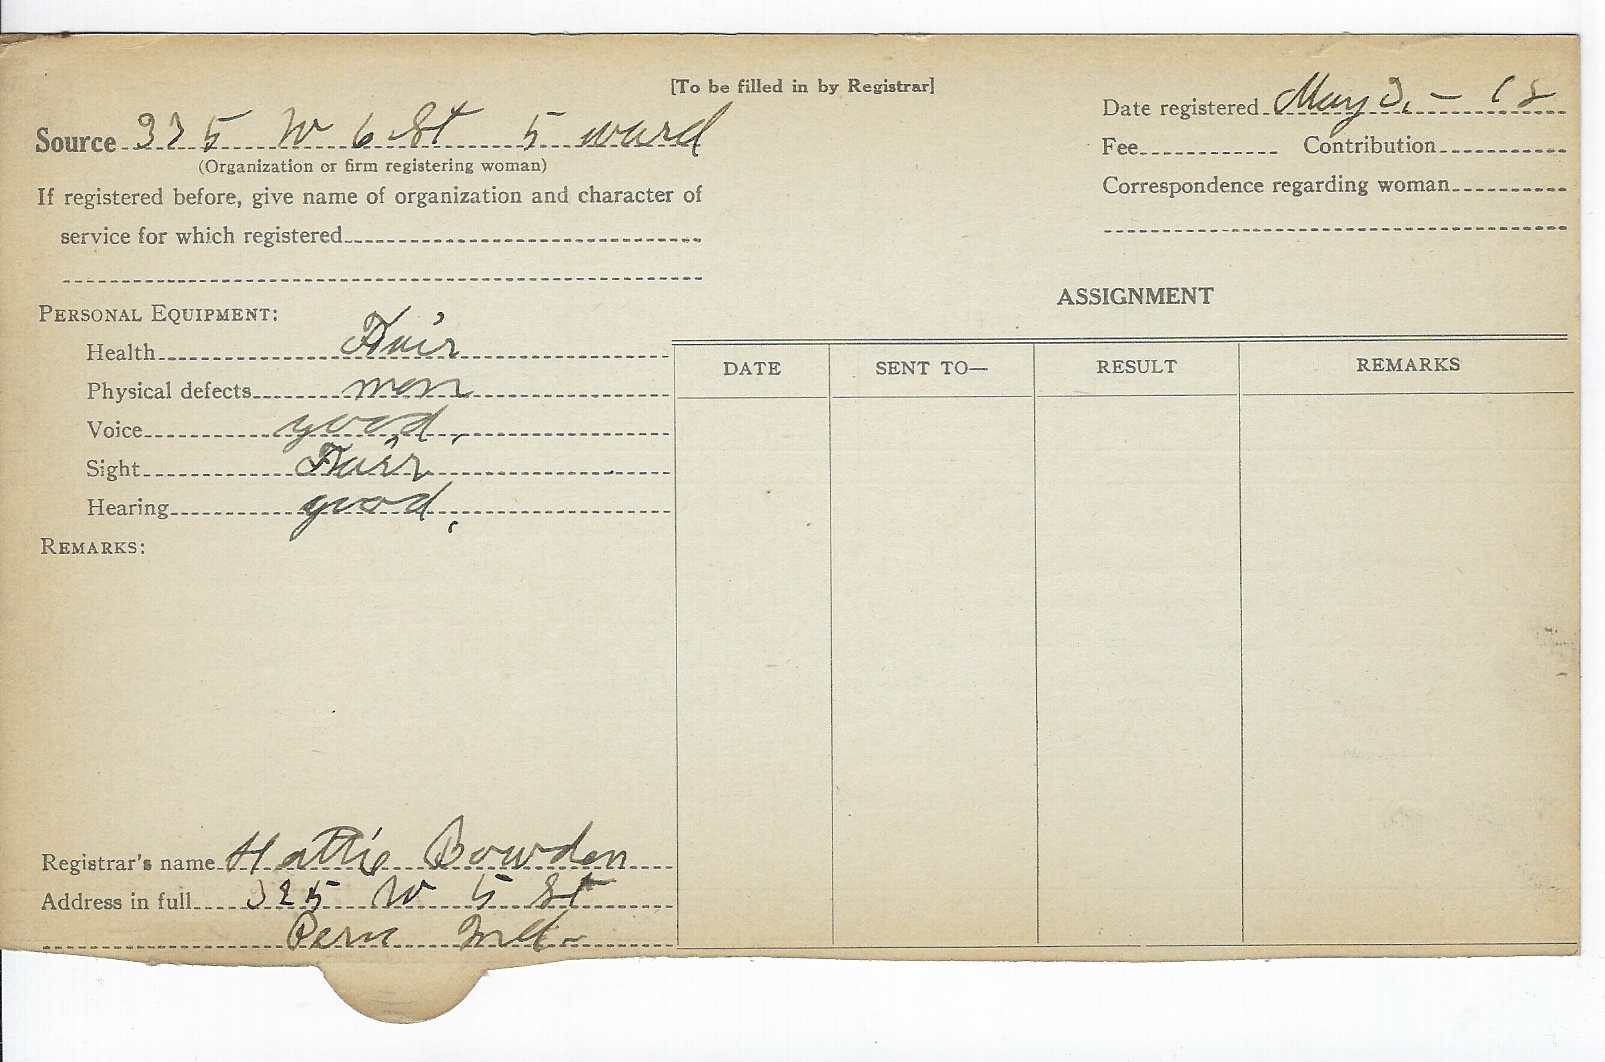 [To be filled in by Registrar]
Date registered May 3, - 18
Source 335 W 6 St 5 ward
(Organization or firm registering woman)
Fee Contribution
If registered before, give name of organization and character of
service for which registered
Correspondence regarding woman
ASSIGNMENT
PERSONAL EQUIPMENT:
Health Fair
Physical defects non
Voice good,
Sight Fair
Hearing good,
REMARKS:
DATE SENT TO— RESULT REMARKS
Registrar's name Hattie Bowden
Address in full 325 W 5 St
Peru Ind-